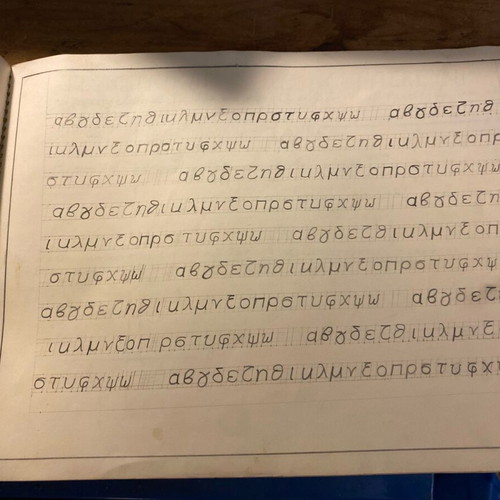 αβγδεζηθικλμνξοπρστυφχψω αβγδεζηθ
ικλμνξοπρστυφχψω αβγδεζηθικλμνξοπρ
στυφχψω αβγδεζηθικλμνξοπρστυφχψω
αβγδεζηθικλμνξοπρστυφχψω αβγδεζη
ικλμνξοπρστυφχψω αβγδεζηθικλμνξοπ
στυφχψω αβγδεζηθικλμνξοπρστυφχψ
αβγδεζηθικλμνξοπρστυφχψω αβγδεζ
ικλμνξοπρστυφχψω αβγδεζηθικλμνξ
στυφχψω αβγδεζηθικλμνξοπρστυφχ